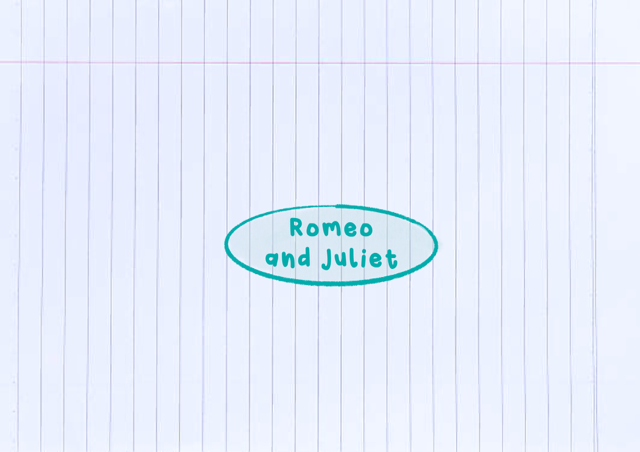 Romeo
and Juliet